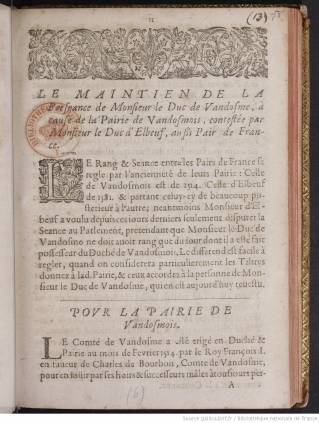 (13)
LE MAINTIEN DE LA
Preseance de Monsieur le Duc de Vandosme, à
cause de la Pairie de Vandosmois, contestée par
Monsieur le Duc d'Elbeuf, aussi Pair de Fran-
ce.
LE Rang & Seance entre les Pairs de France se
regle par l'ancienneté de leurs Pairie: Celle
de Vandosmois est de 1514. Celle d'Elbeuf
de 1581. & partant celuy-cy de beaucoup po-
sterieur à l'autre; neantmoins Monsieur d'El-
beuf a voulu depuis ces iours derniers seulement disputer la
Seance au Parlement, pretendant que Monsieur le Duc de
Vandosme ne doit auoir rang que du iour dont il a esté fait
possesseur du Duché de Vandosmois. Le differend est facile à
regler, quand on considerera particulierement les Tiltres
donnez à lad. Pairie, & ceux accordez à la personne de Mon-
sieur le Duc de Vandosme, qui en est auiourd'huy reuestu.
POVR LA PAIRIE DE
Vandosmois.
LE Comté de Vandosme a esté erigé en Duché &
Pairie au mois de Fevrier 1514. par le Roy François I.
en faueur de Charles de Bourbon, Comte de Vandosme,
pour en iouir par ses hoirs & successeurs mâles à tousiours per-
A
(6)
Source gallica.bnf.fr / Bibliothèque nationale de France